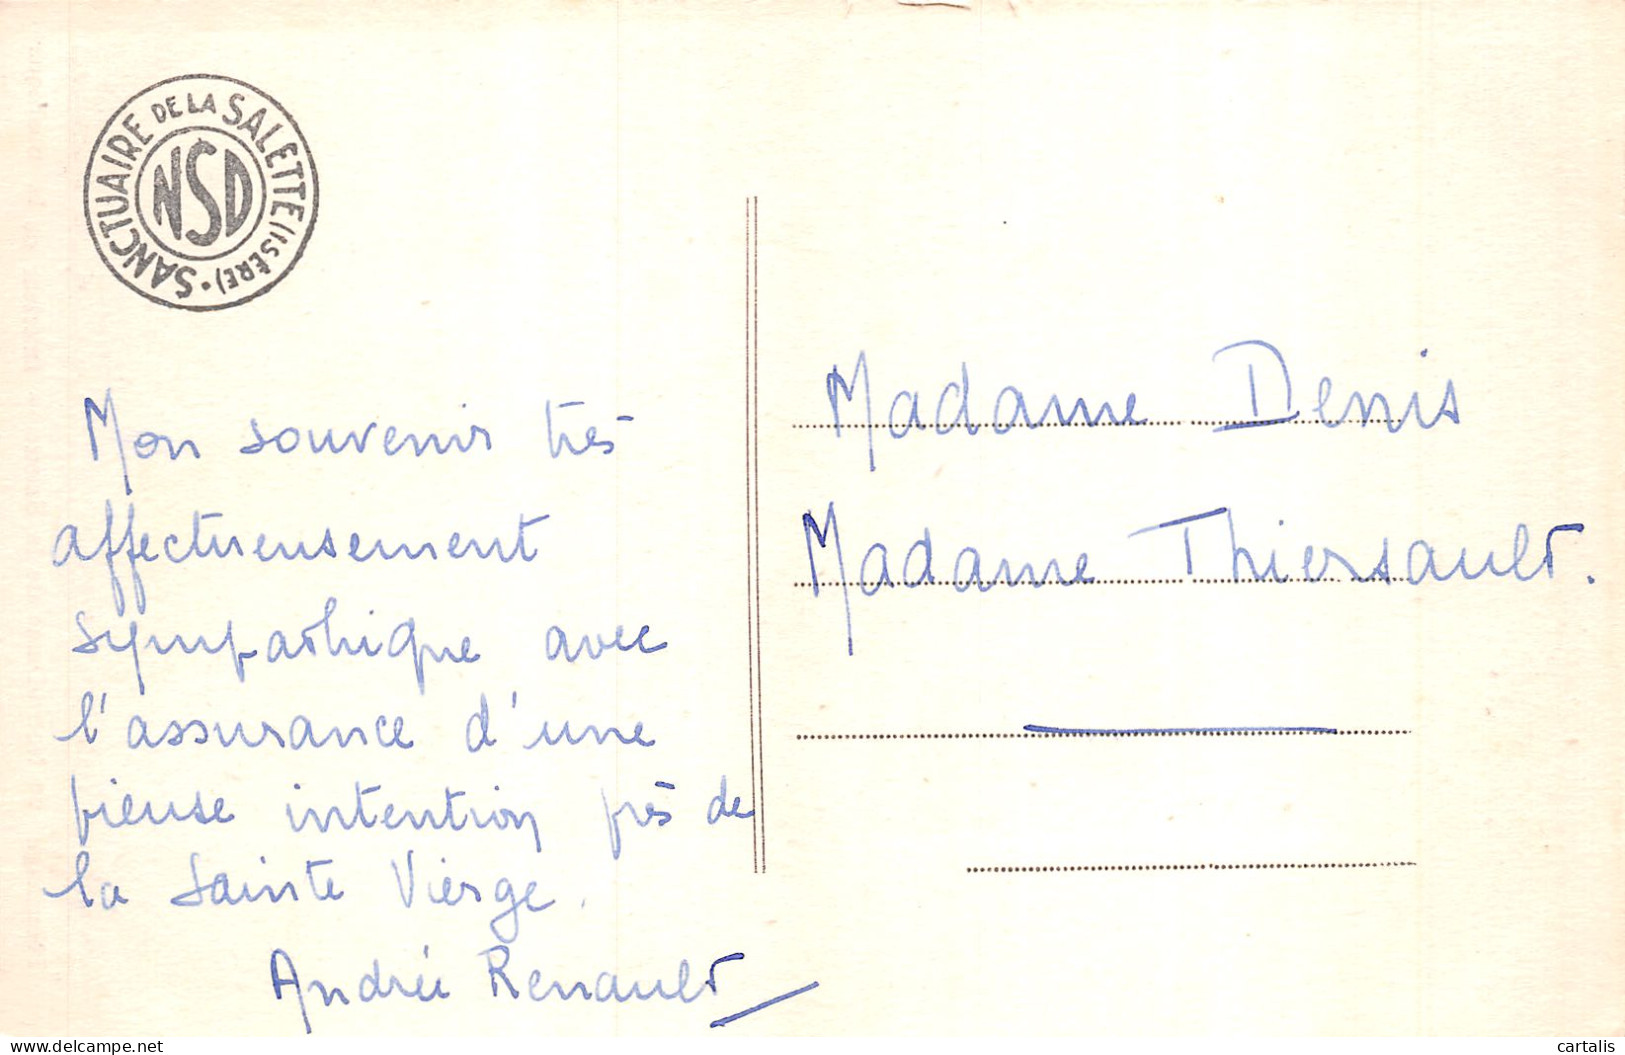 SANCTUAIRE DE LA SALETTE (ISÈRE) •
NSD
Mon souvenir très
affectueusement
sympathique avec
l'assurance d'une
pieuse intention près de
la Sainte Vierge.
Andrée Renault
Madame Denis
Madame Thiersault.
delcampe.net
cartalis